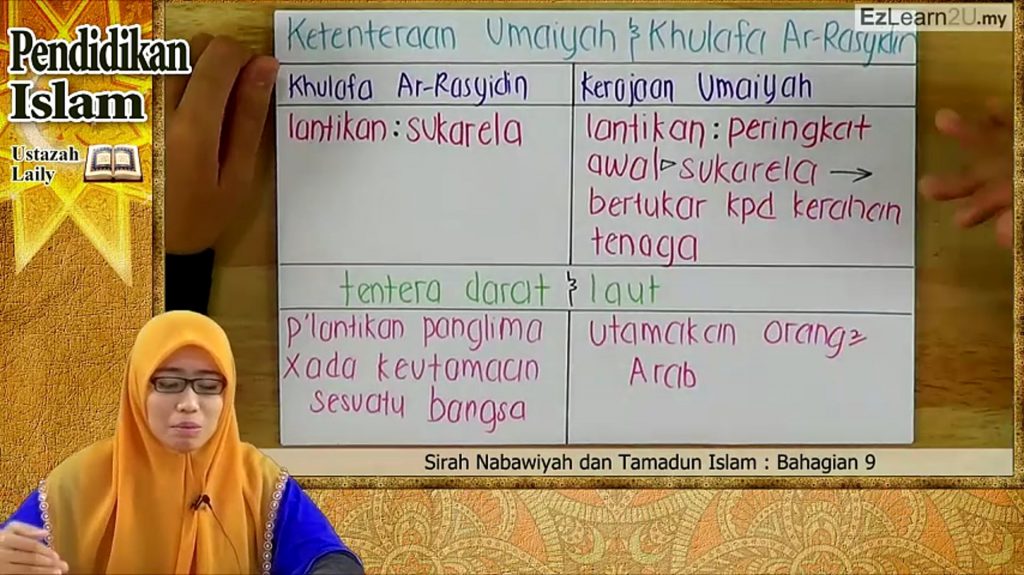 EzLearn2U.my
Pendidikan
Islam
Ustazah
Laily
Ketenteraan Umaiyah & Khulafa Ar-Rasyidin
Khulafa Ar-Rasyidin
Kerajaan Umaiyah
lantikan : sukarela
lantikan : peringkat
awal ▷ sukarela →
bertukar kpd kerahan
tenaga
tentera darat & laut
p'lantikan panglima
X ada keutamaan
sesuatu bangsa
Utamakan orang2
Arab
Sirah Nabawiyah dan Tamadun Islam : Bahagian 9